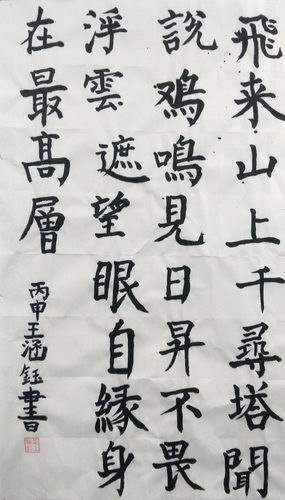 飛来山上千尋塔聞
說鳮鳴見日昇不畏
浮雲遮望眼自縁身
在最髙層
丙申王涵鈺書